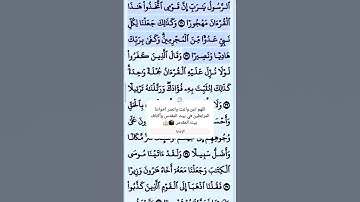 ٱلرَّسُولُ يَٰرَبِّ إِنَّ قَوْمِى ٱتَّخَذُوا۟ هَٰذَا
ٱلْقُرْءَانَ مَهْجُورًا ۝٣٠ وَكَذَٰلِكَ جَعَلْنَا لِكُلِّ
نَبِىٍّ عَدُوًّا مِّنَ ٱلْمُجْرِمِينَ وَكَفَىٰ بِرَبِّكَ
هَادِيًا وَنَصِيرًا ۝٣١ وَقَالَ ٱلَّذِينَ كَفَرُوا۟
لَوْلَا نُزِّلَ عَلَيْهِ ٱلْقُرْءَانُ جُمْلَةً وَٰحِدَةً
كَذَٰلِكَ لِنُثَبِّتَ بِهِۦ فُؤَادَكَ وَرَتَّلْنَٰهُ تَرْتِيلًا
بِٱلْحَقِّ
اللهم امن واغث وانصر اخواننا
المرابطين في بيت المقدس وأكناف
بيت المقدس
وُجُوهِهِمْ
وَأَضَلُّ سَبِيلًا ۝٣٤ وَلَقَدْ ءَاتَيْنَا مُوسَى
ٱلْكِتَٰبَ وَجَعَلْنَا مَعَهُۥٓ أَخَاهُ هَٰرُونَ وَزِيرًا
۝٣٥ فَقُلْنَا ٱذْهَبَآ إِلَى ٱلْقَوْمِ ٱلَّذِينَ كَذَّبُوا۟